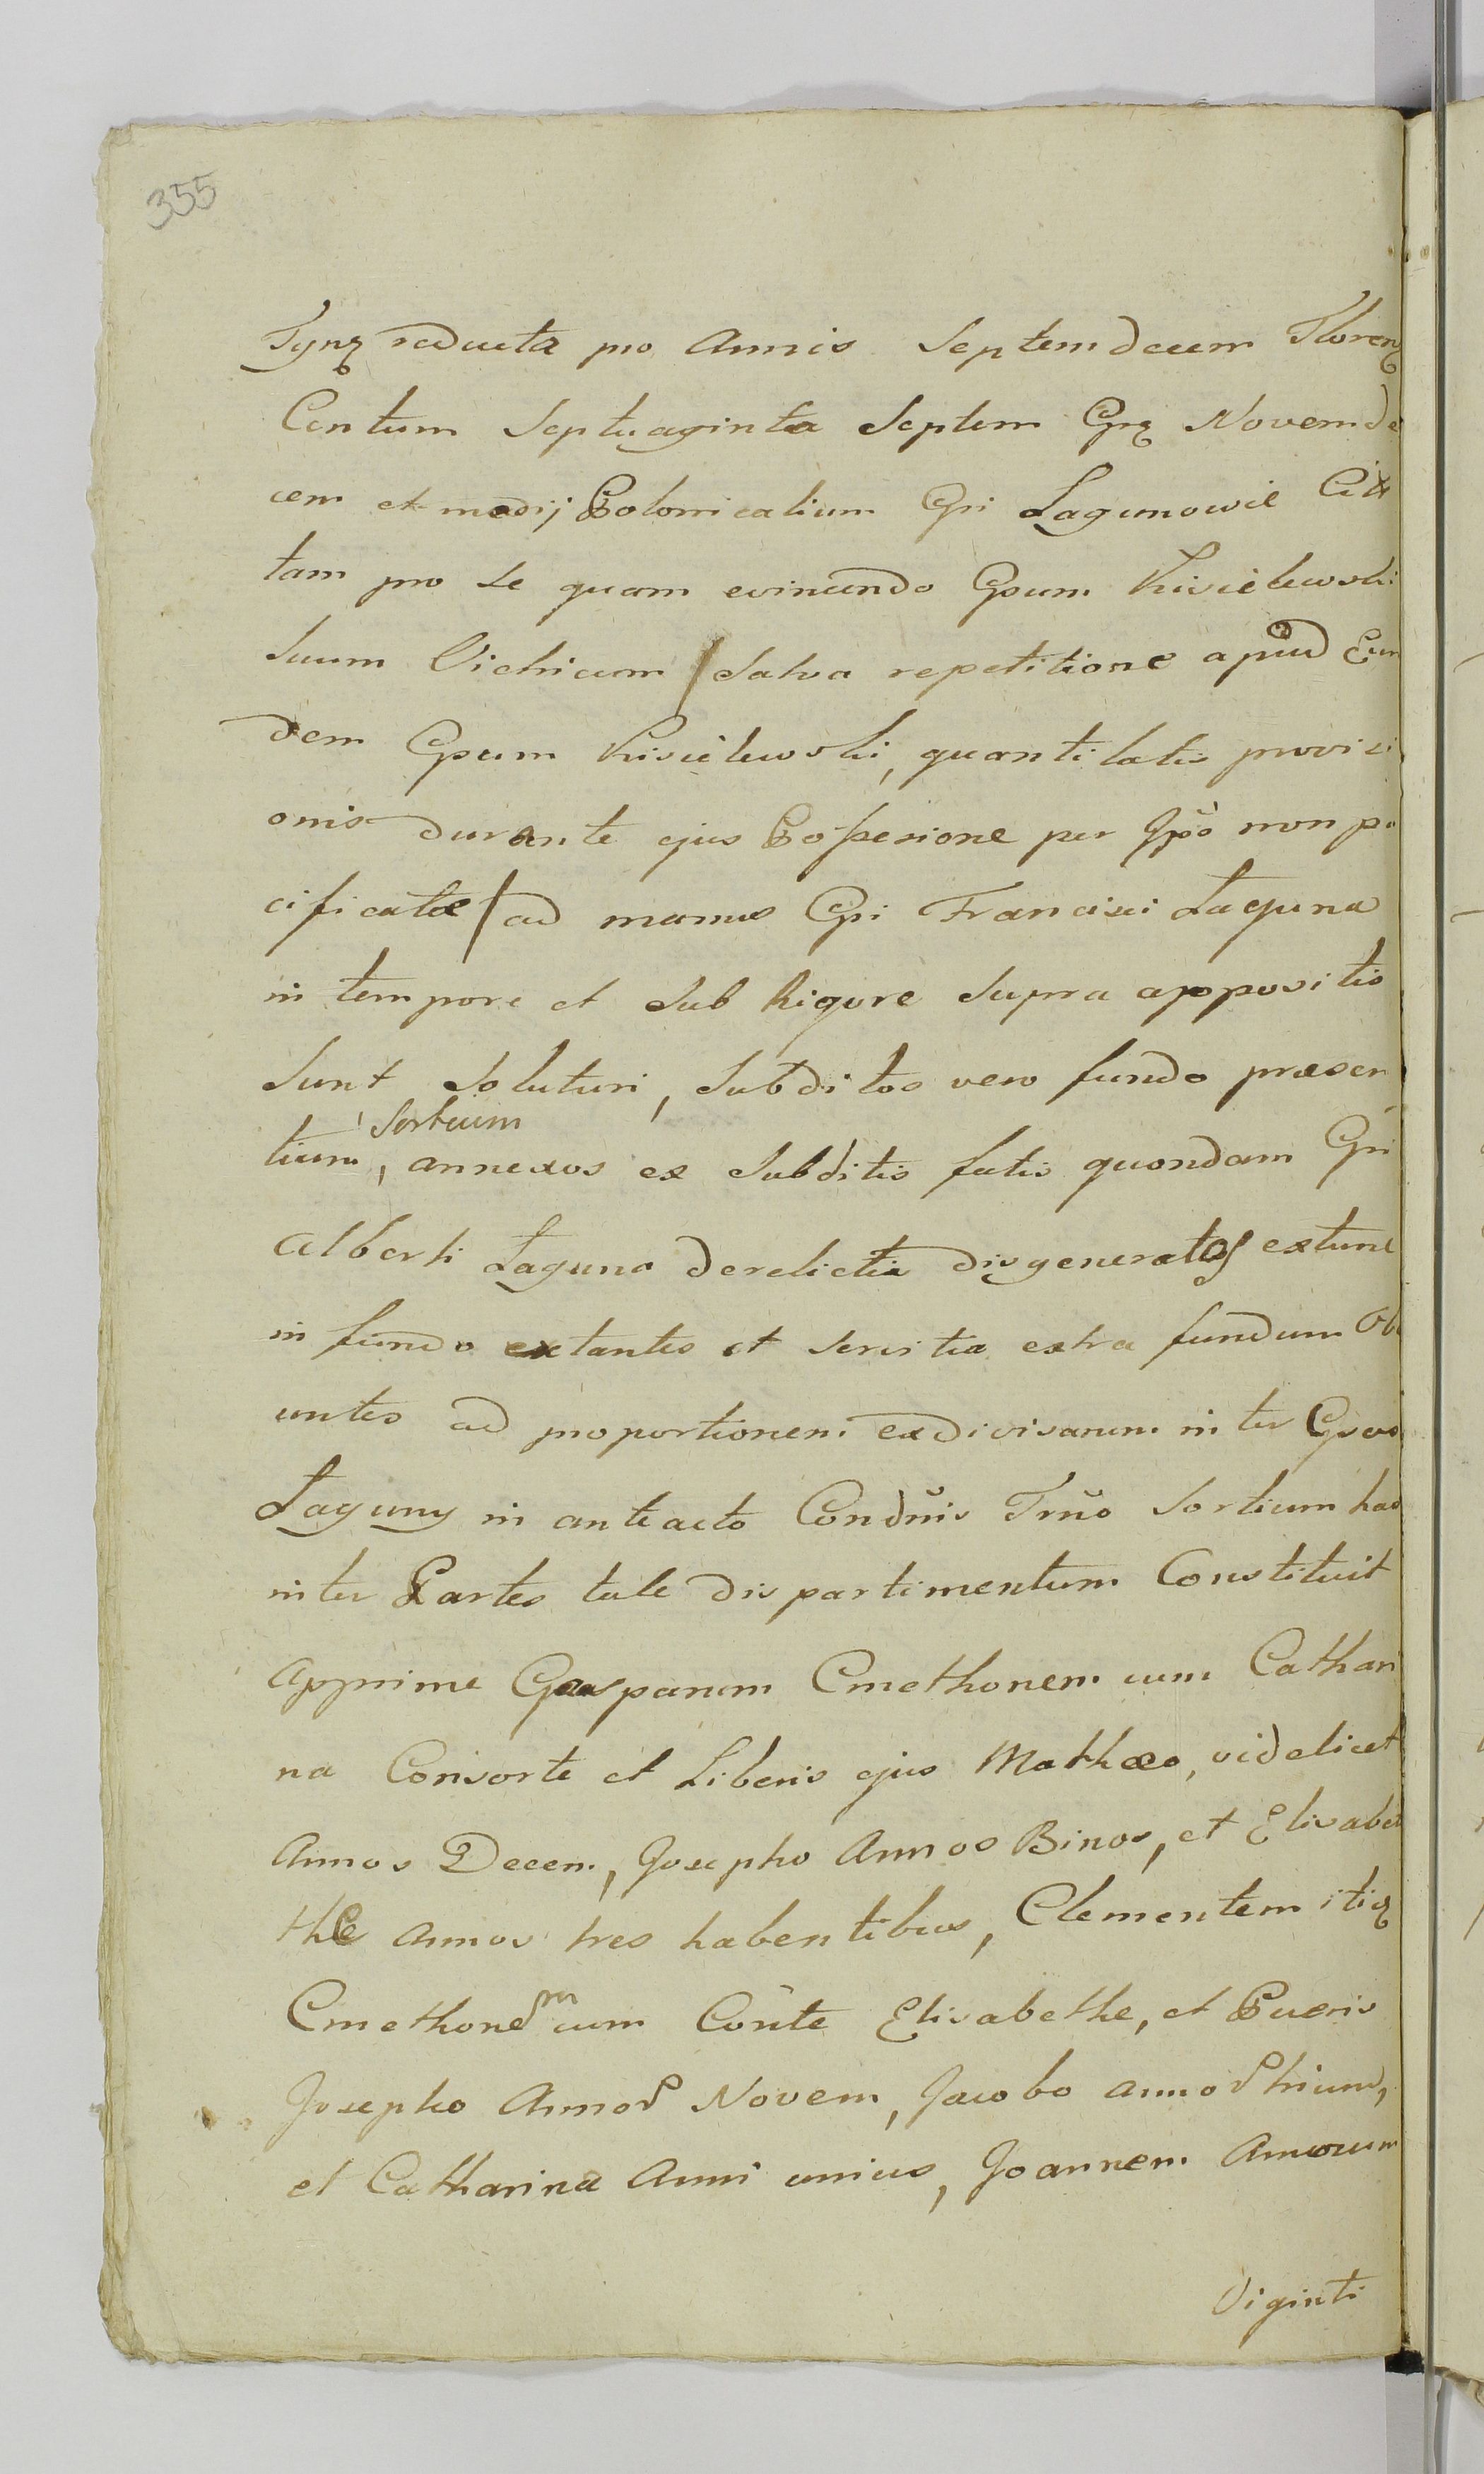 355
Tynz reducta pro Annis Septemdecem Floren
Centum Septuaginta Septem Grz Novemde
cem et medij Polonicalium Gsi Lagunowie Citt
tam pro se quam evincendo Gsum Kisielewski
Suum Vichicum / Salva repetitione apud Eun
dem Gsum Kisielewski, quantitatis provisi
onis durante ejus Possesione per Ipso non pa
cificatæ / ad manus Gsi Francisci Laguna
in tempore et sub Rigore supra appositis
Sunt soluturi, Subditos vero fundo præsen
Sortium
tium, annexos ex Subditis fatis quondam Gsi
Alberti Laguna derelictis disgeneratos extunc
in fundo extantes et servitia extra fundum Ob
untes ad proportionem exdivisarum inter Gsos
Laguny in anteacto Conduis Trno Sortium hac
inter Partes tale dispartimentum Constituit
Apprime Gasparum Cmethonem cum Cathari
na Consorte et Liberis ejus Mathæo, videlicet
Annos Decem, Josepho Annos Binos, et Elisabe
the Annos tres habentibus, Clementem itiq
Cmethonem cum Conte Elisabethe, et Pueris
Josepho Annor Novem, Jacobo annor trium,
et Catharina Anni unius, Joannem Annorum
Viginti